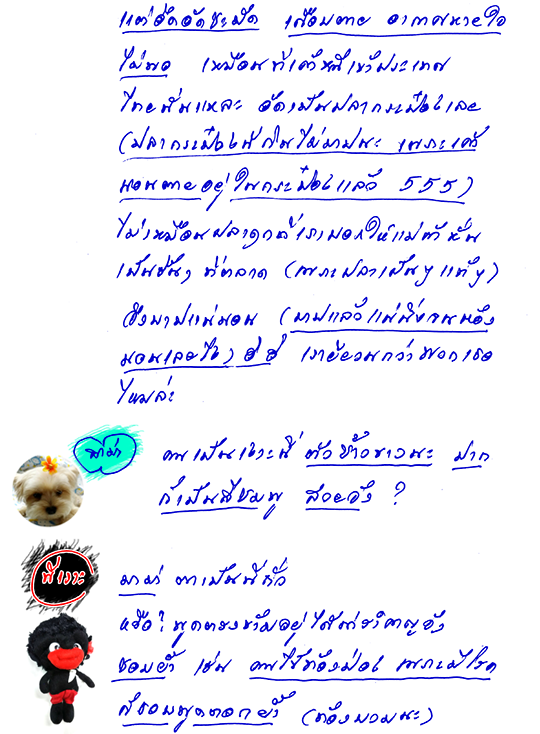 แต่อึดอัดชะมัด เสือมตาย อากาศหายใจ
ไม่พอ เหมือนที่เค้าหนีเข้าประเทศ
ไทยนั่นแหละ อัดเป็นปลากระป๋องเลย
(ปลากระป๋องน่ะกินไม่บาปนะ เพราะเค้า
นอนตายอยู่ในกระป๋องแล้ว 555)
ไม่เหมือนปลาดุกที่เราบอกให้แม่ค้าหั่น
เป็นชิ้นๆ ที่ตลาด (เพราะปลาเป็นๆ แท้ๆ)
ซึ่งบาปแน่นอน (บาปแล้วแน่นิ่งจนต้อง
นอนเลยไง) ฮี่ฮี่ เราอ้วนกว่าพวกเธอ
ไหมล่ะ
มาม่า คนเป็นเงาะนี่ ตัวข๊าวขาวนะ ปาก
ก็เป็นสีชมพู สวยจัง ?
พี่เงาะ มาม่า ตาเป็นต้อรึ
หรือ? พูดตรงข้ามอยู่ได้น่ารำคาญจัง
ชอบย้ำ เช่น คนไข้ท้องป่อง เพราะมีโรค
ก็ชอบพูดตอกย้ำ (ท้องบวมนะ)